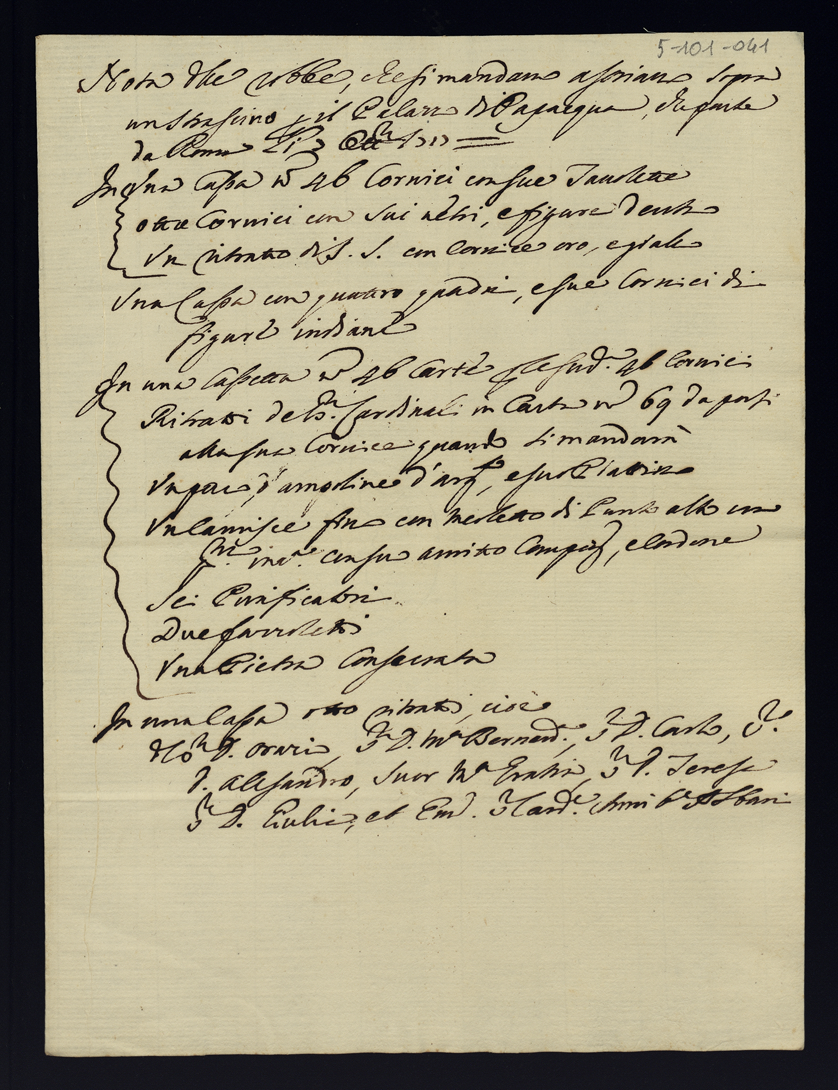 5-101-041
Nota delle robbe, che si mandano a Soriano sopra
un strascino p il Palazzo di Papacqua, che parte
da Roma li 3 Ott.
In Una Cassa n.º 46 Cornici con sue Tavolette
otto Cornici con suoi vetri, e figure dentro
Un ritratto di S. S. con Cornice oro, e gialla
Una Cassa con quattro quadri, e sue Cornici di
figure indiane
In una Cassetta n.º 46 Carte p le sud.e 46 Cornici
Ritratti de Sri. Cardinali in Carta n.º 69 da porsi
alla sua Cornice quando si mandarà
Un paro d'ampoline d'arg.to, e suo Piattino
Un Camisce fino con Merletto di Punto alto un
con suo amitto Compag.o, e Cordone
Sei Purificatori
Due fazzoletti
Una Pietra Consacrata
In una Cassa otto ritratti, cioè
D. Orazio, Sr. D. Mª Bernard.ª, Sr D. Carlo, Sr.
D. Alesandro, Suor Mª Gratia, Srª D. Teresa
Srª D. Giulia, et Em.º Sr Card. Annibe Albani